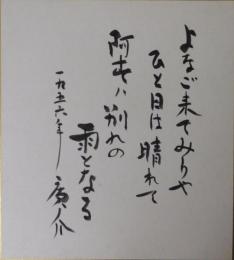 よなご来てみりや
ひと目は晴れて
阿せハ別れの
雨となる
一九五六年
廣介